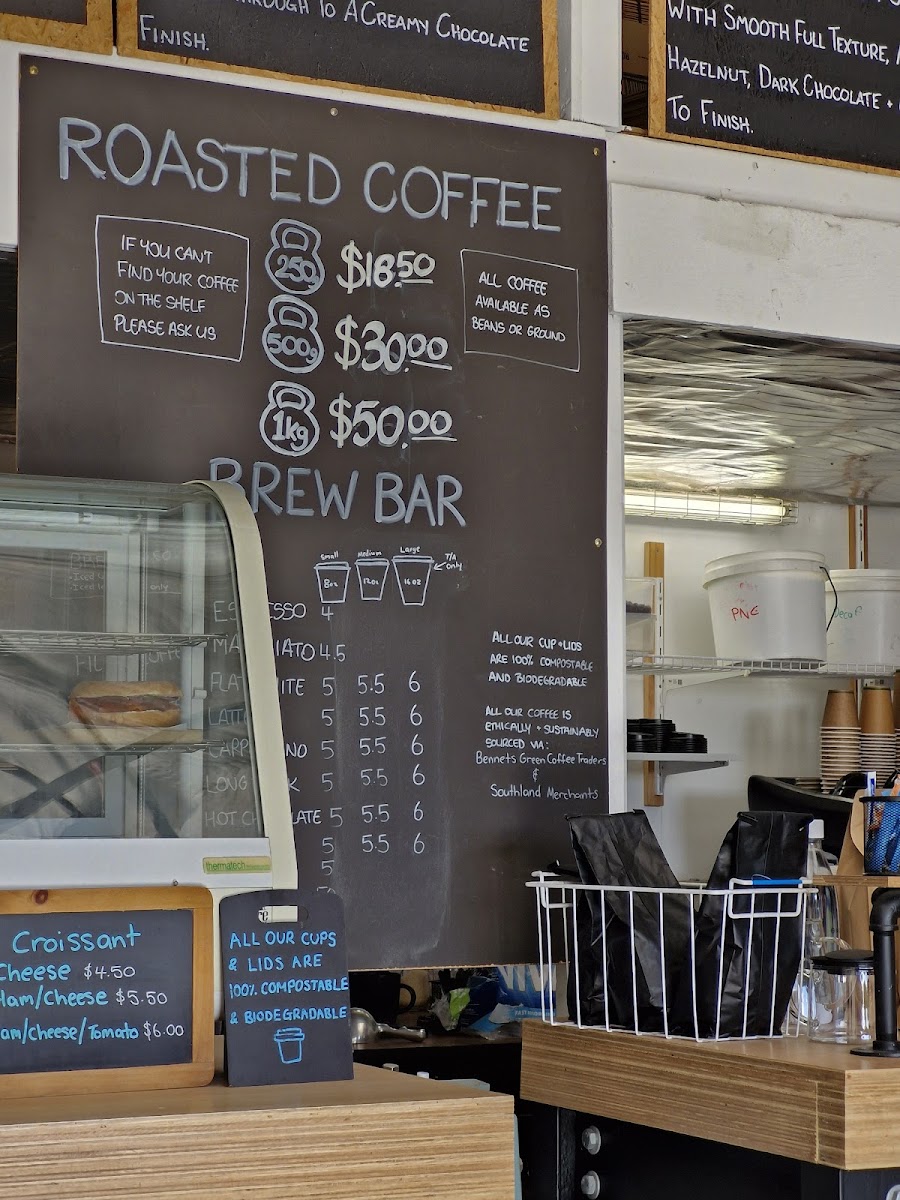 THROUGH TO A CREAMY CHOCOLATE
FINISH.
WITH SMOOTH FULL TEXTURE,
HAZELNUT, DARK CHOCOLATE +
TO FINISH.
ROASTED COFFEE
IF YOU CAN'T
FIND YOUR COFFEE
ON THE SHELF
PLEASE ASK US
250g $18.50
500g $30.00
1kg $50.00
ALL COFFEE
AVAILABLE AS
BEANS OR GROUND
BREW BAR
Small Medium Large
8oz 12oz 16oz T/A only
ESPRESSO 4
MACCHIATO 4.5
FLAT WHITE 5 5.5 6
LATTE 5 5.5 6
CAPPUCCINO 5 5.5 6
LONG BLACK 5 5.5 6
HOT CHOCOLATE 5 5.5 6
5 5.5 6
5
ALL OUR CUP + LIDS
ARE 100% COMPOSTABLE
AND BIODEGRADABLE
ALL OUR COFFEE IS
ETHICALLY + SUSTAINABLY
SOURCED VIA:
Bennets Green Coffee Traders
&
Southland Merchants
PNG
Decaf
thermatech
Croissant
Cheese $4.50
Ham/Cheese $5.50
Ham/Cheese/Tomato $6.00
ALL OUR CUPS
& LIDS ARE
100% COMPOSTABLE
& BIODEGRADABLE